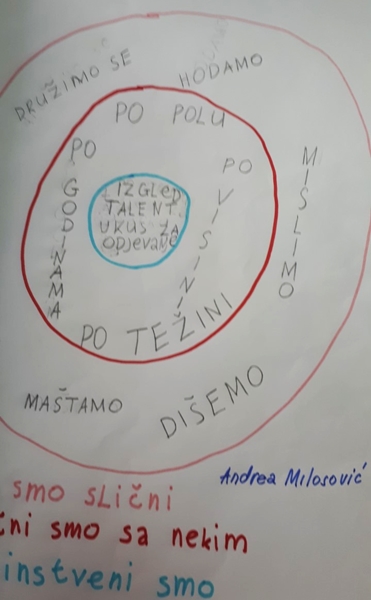 DRUŽIMO SE
HODAMO
MISLIMO
DIŠEMO
MAŠTAMO
PO POLU
PO VISINI
PO TEŽINI
PO GODINAMA
IZGLED
TALENT
UKUS ZA
OPJEVANJE
Andrea Milosović
smo slični
čni smo sa nekim
instveni smo